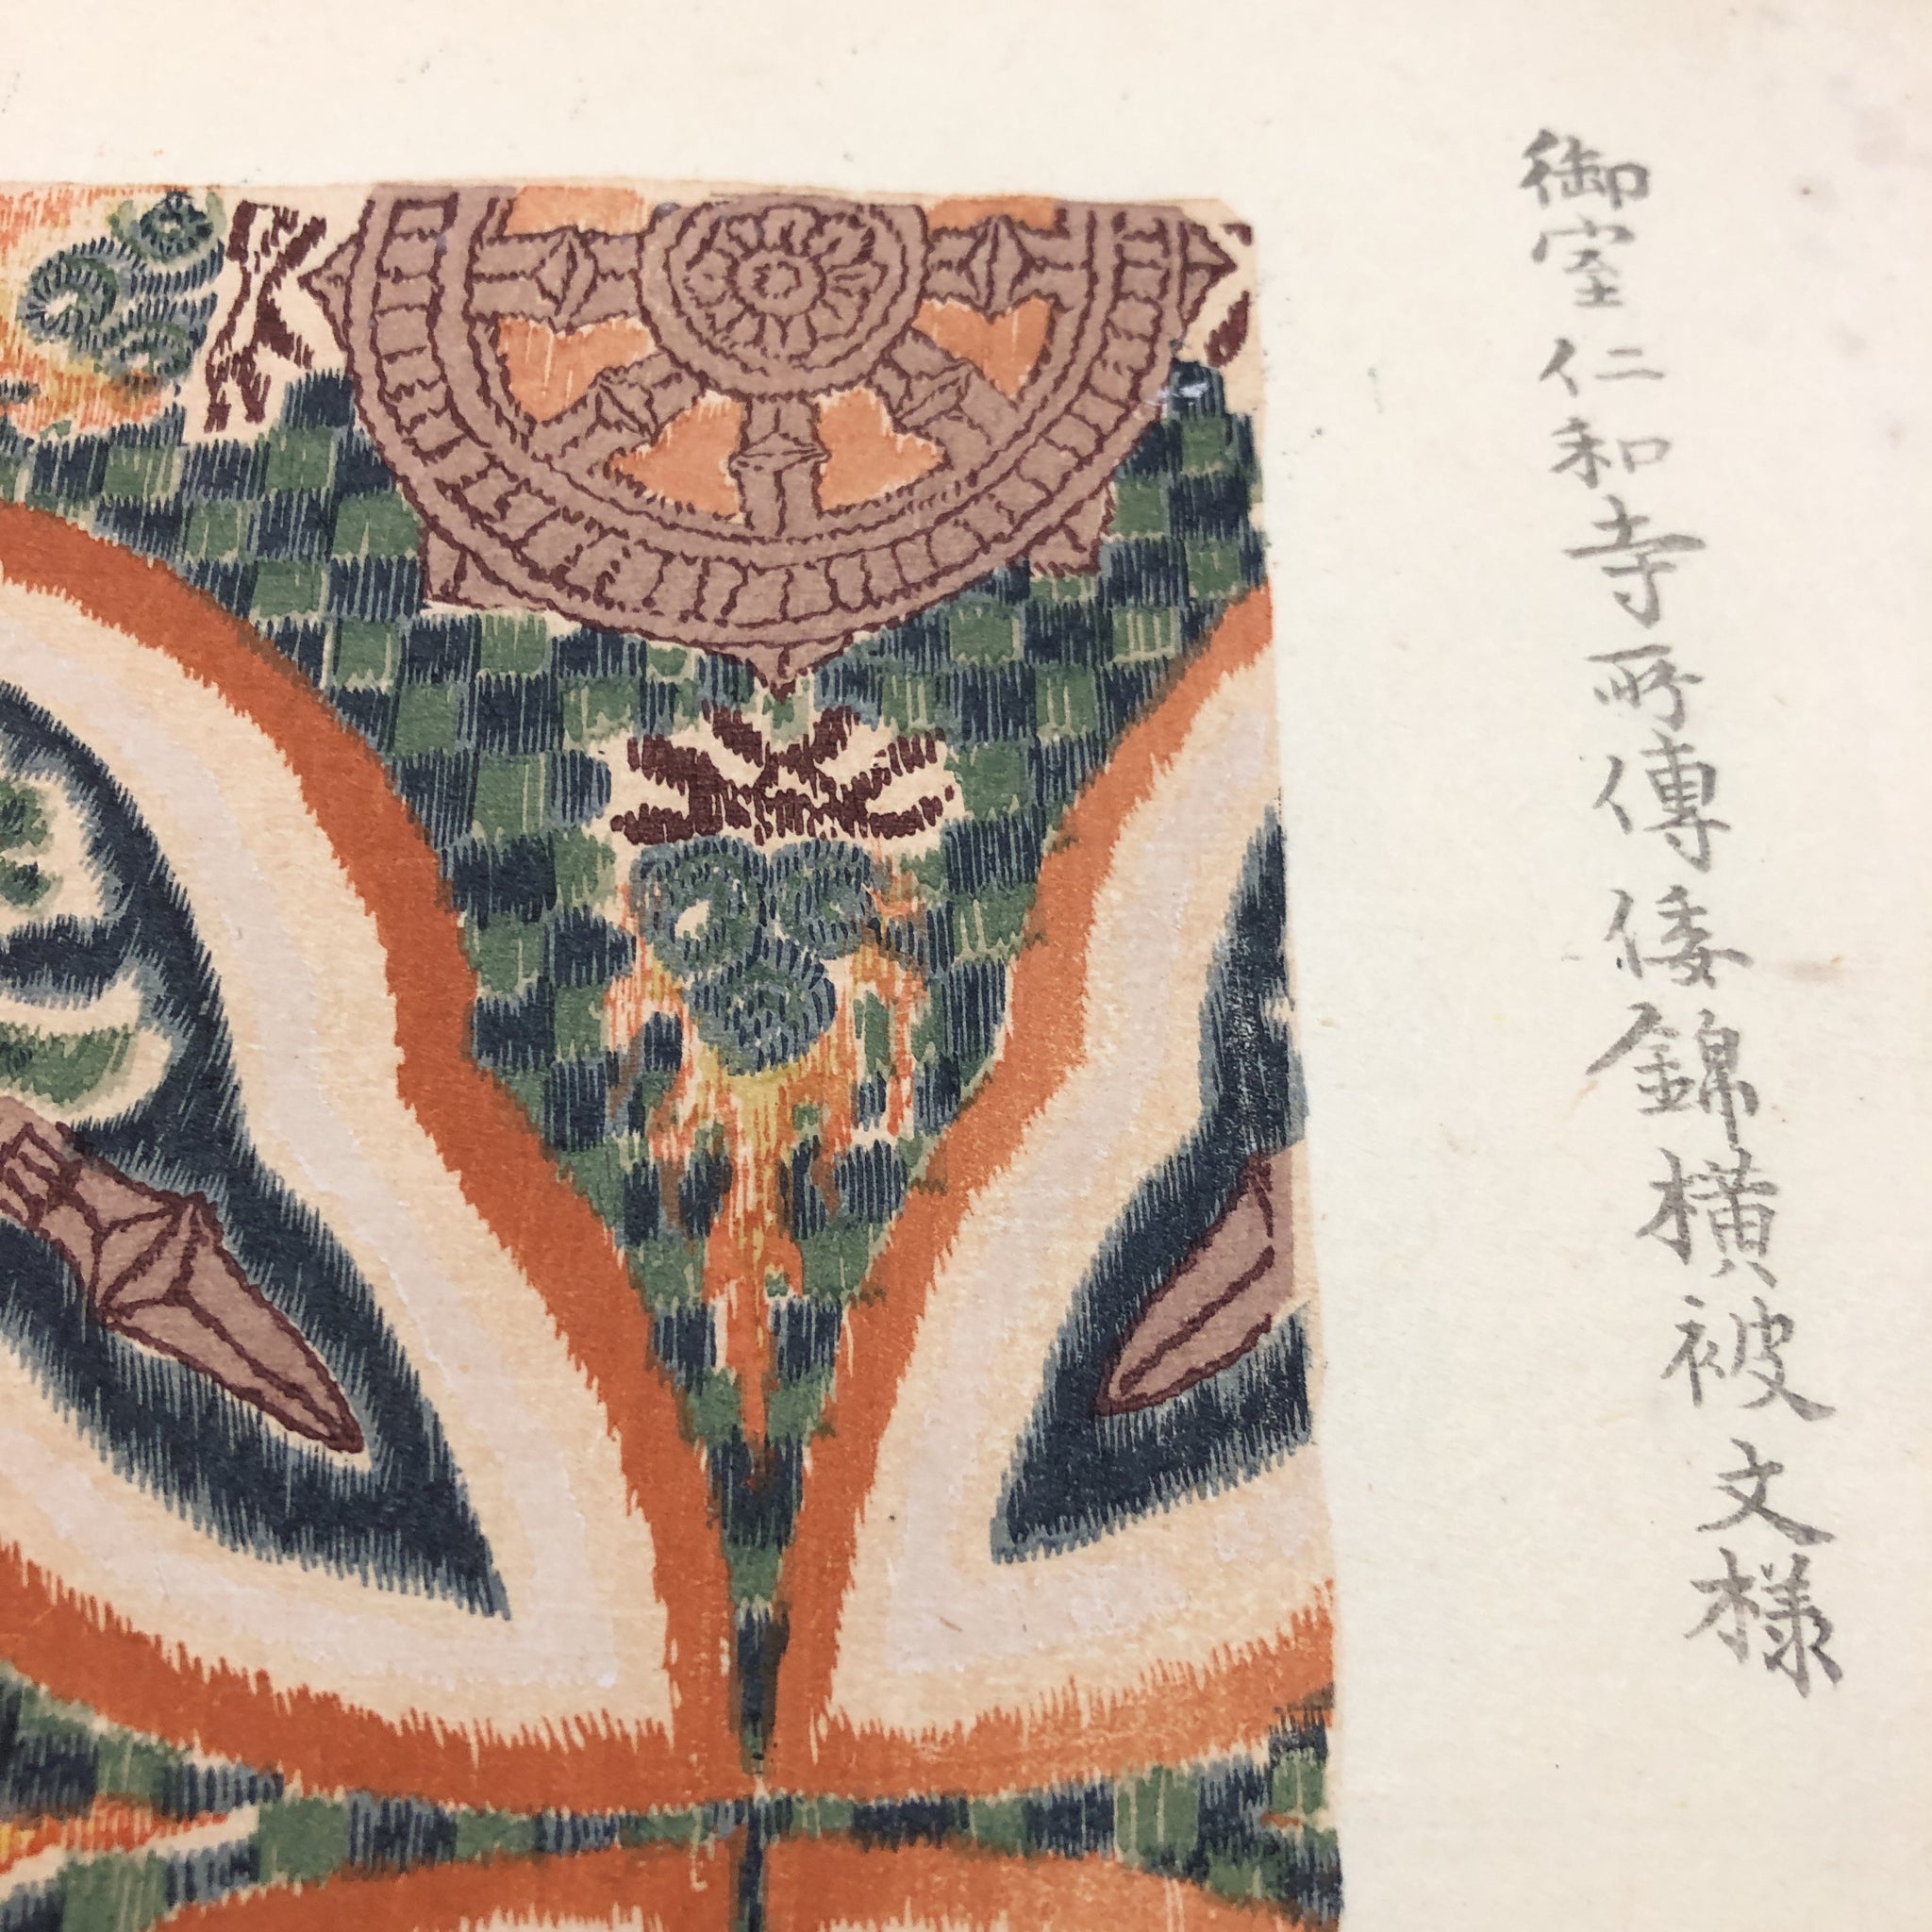 御室仁和寺所傳倭錦横被文様